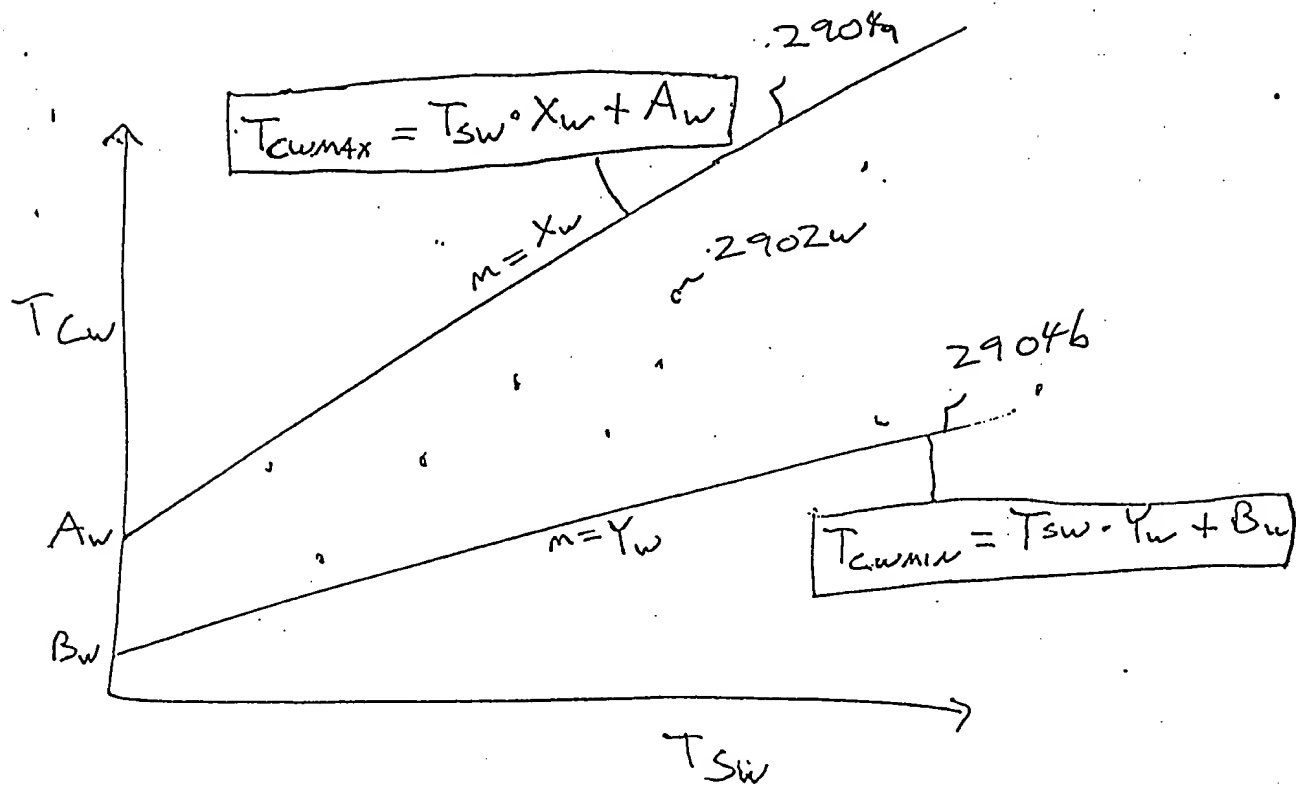 2904a
T_CWMAX = T_SW · X_W + A_W
m = X_W
2902W
T_CW
2904b
A_W
m = Y_W
T_CWMIN = T_SW · Y_W + B_W
B_W
T_SW